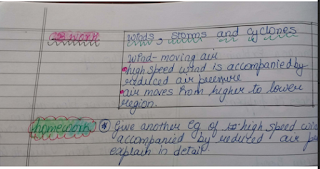 CB WORK
Winds, Storms and cyclones
Wind- moving air
high speed wind is accompanied by
reduced air pressure
air moves from higher to lower
region.
homework Give another eg of high speed
accompanied by reduced air
explain in detail